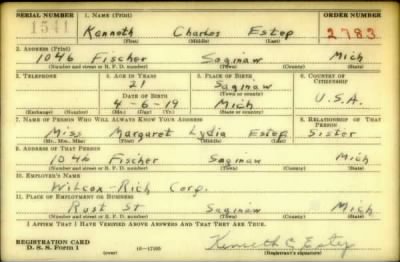 SERIAL NUMBER 1. NAME (Print) ORDER NUMBER
1541 Kenneth Charles Estep 2783
(First) (Middle) (Last)
2. ADDRESS (Print)
1046 Fischer Saginaw Mich
(Number and street or R. F. D. number) (Town) (County) (State)
3. TELEPHONE 4. AGE IN YEARS 5. PLACE OF BIRTH 6. COUNTRY OF CITIZENSHIP
21 Saginaw
(Town or county)
DATE OF BIRTH
4-6-19 Mich U.S.A.
(Exchange) (Number) (Mo.) (Day) (Yr.) (State or country)
7. NAME OF PERSON WHO WILL ALWAYS KNOW YOUR ADDRESS 8. RELATIONSHIP OF THAT PERSON
Miss Margaret Lydia Estep Sister
(Mr., Mrs., Miss) (First) (Middle) (Last)
9. ADDRESS OF THAT PERSON
1046 Fischer Saginaw Mich
(Number and street or R. F. D. number) (Town) (County) (State)
10. EMPLOYER'S NAME
Wilcox-Rich Corp.
11. PLACE OF EMPLOYMENT OR BUSINESS
Rust St Saginaw Mich
(Number and street or R. F. D. number) (Town) (County) (State)
I AFFIRM THAT I HAVE VERIFIED ABOVE ANSWERS AND THAT THEY ARE TRUE.
REGISTRATION CARD
D. S. S. Form 1 (over) 16-17105 Kenneth C Estep
(Registrant's signature)